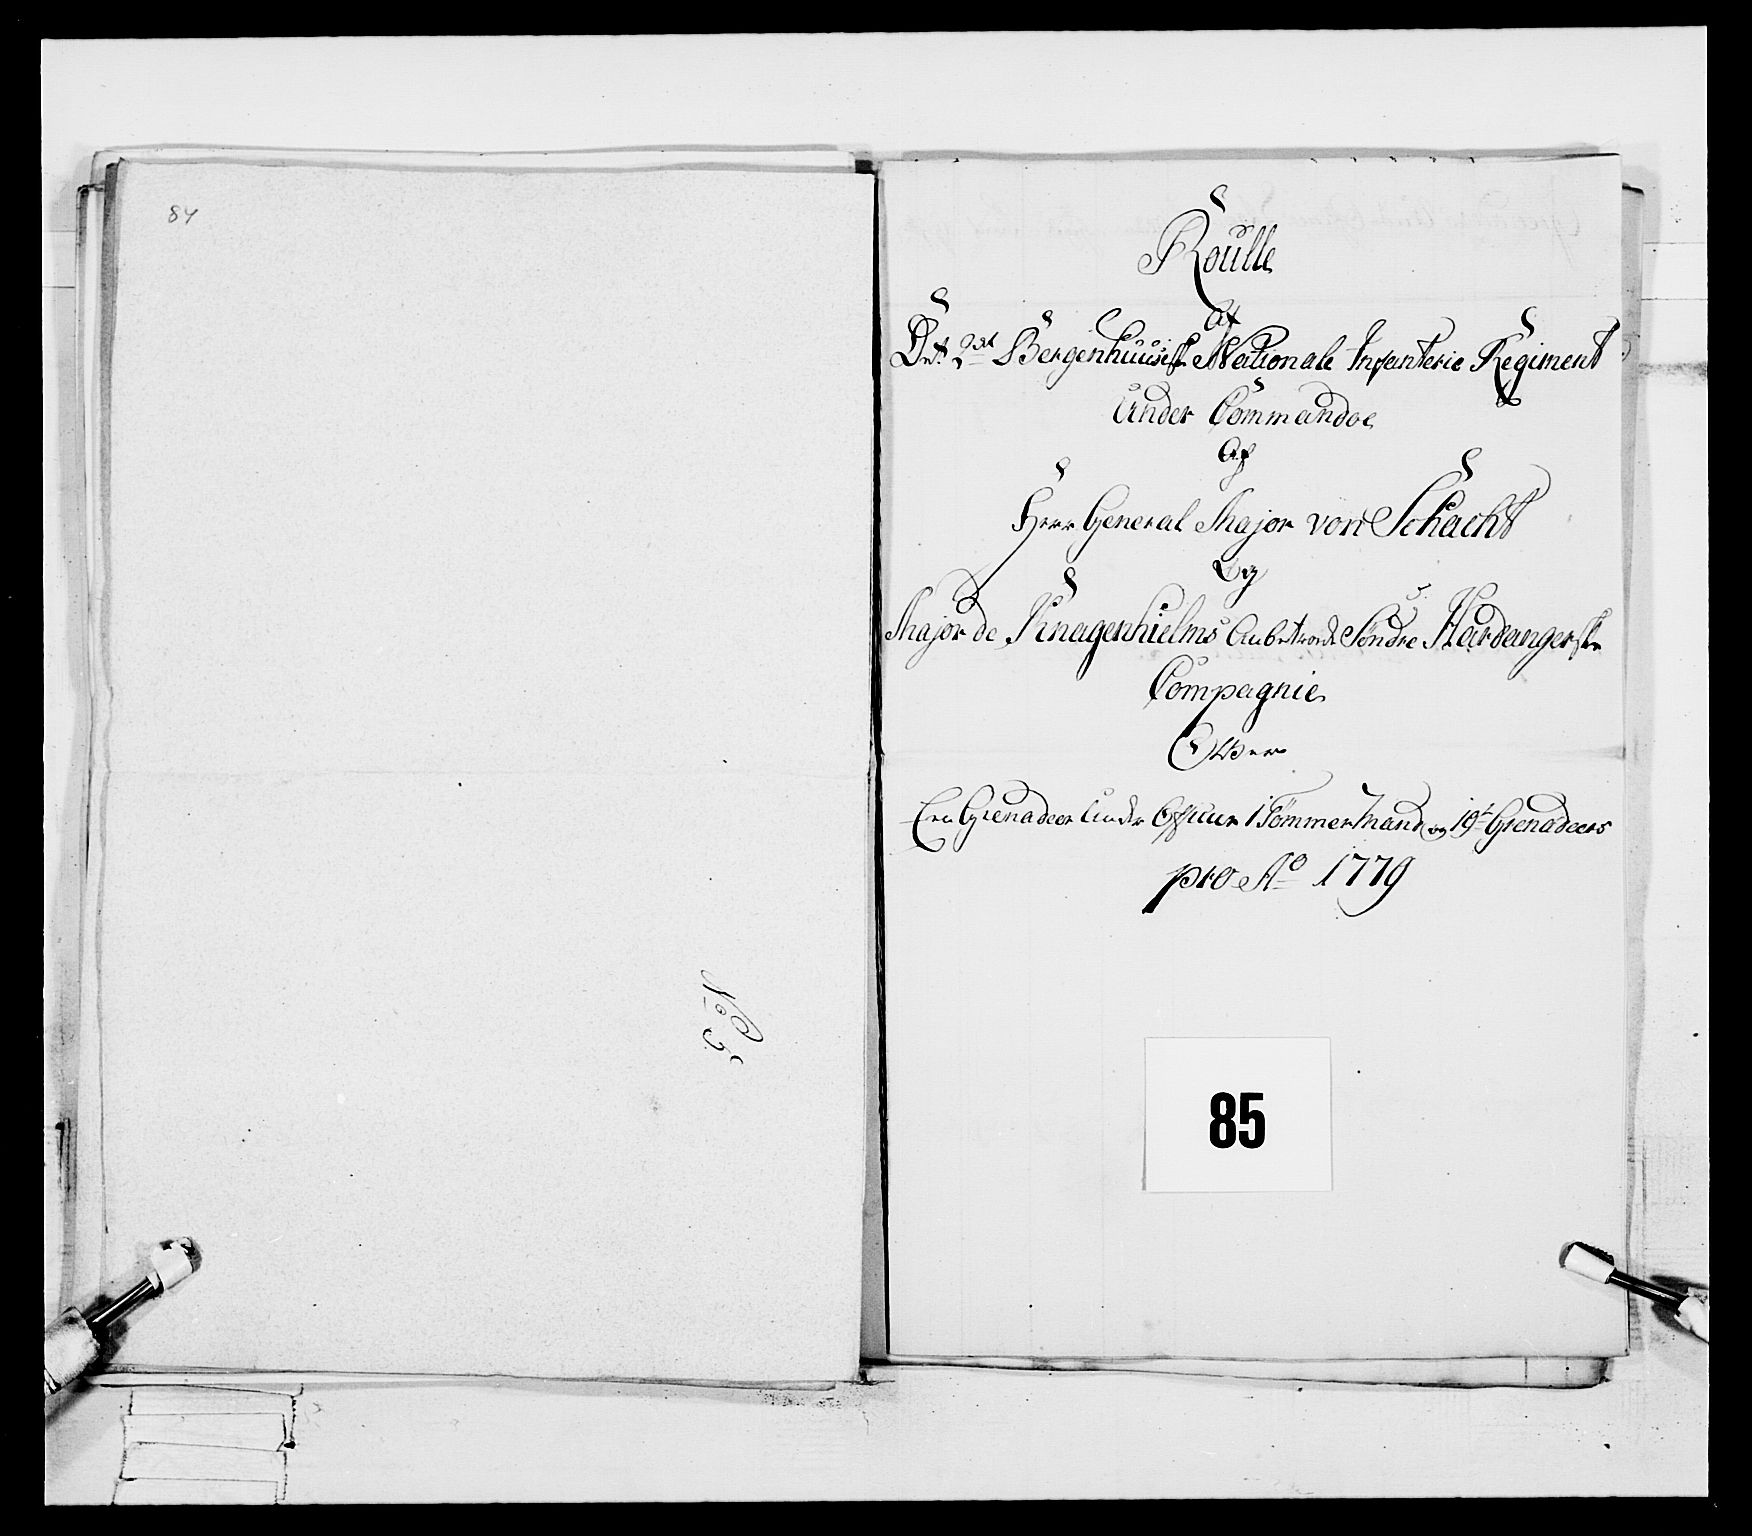 84
No 5
Roulle
Af
Det 2det Bergenhuusiske Nationale Infanterie Regiment
Under Commandoe
Af
Herr General Major von Schacht
Og
Major de Knagenhielms Anbetroede Söndre Hardangerske
Compagnie
Over
Een Grenadeer Under Officeer 1 Tömmermand og 19 Grenadeers
pro Ao 1779
85